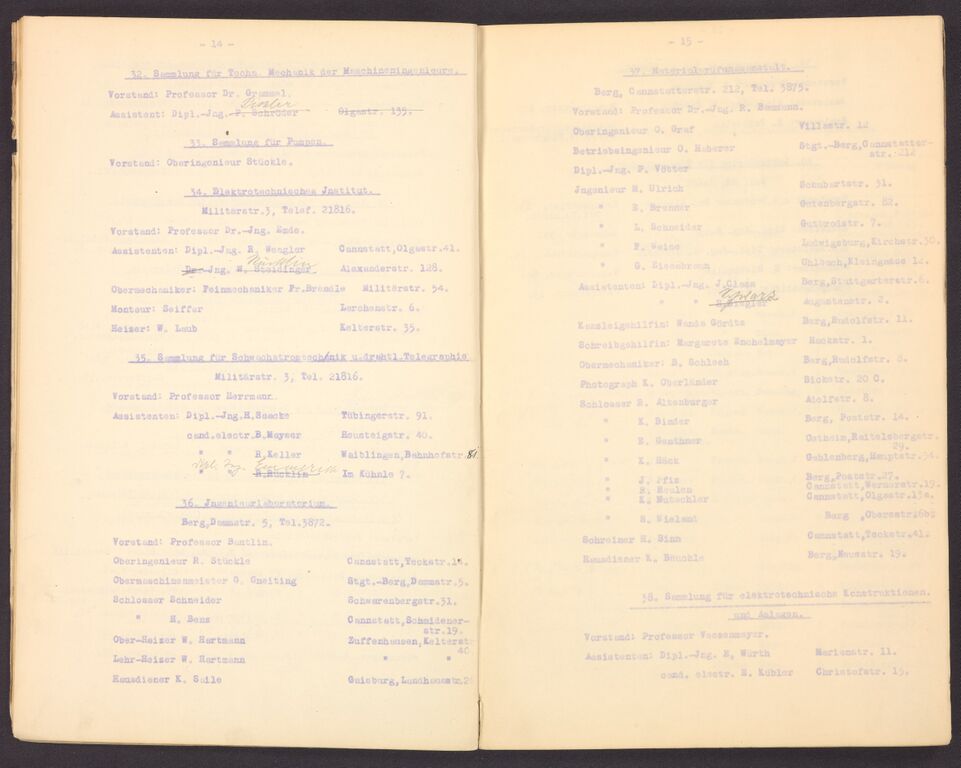 - 14 -
32. Sammlung für Techn. Mechanik der Maschineningenieure.
Vorstand: Professor Dr. Grammel.
Assistent: Dipl.-Jng. F. Schröder Olgastr. 135.
33. Sammlung für Pumpen.
Vorstand: Oberingenieur Stückle.
34. Elektrotechnisches Jnstitut.
Militärstr.3, Telef. 21816.
Vorstand: Professor Dr.-Jng. Emde.
Assistenten: Dipl.-Jng. R. Wengler Cannstatt,Olgastr.41.
Nücklin
Dr.-Jng. W. Steidinger Alexanderstr. 128.
Obermechaniker: Feinmechaniker Fr.Brändle Militärstr. 54.
Monteur: Seiffer Lerchenstr. 6.
Heizer: W. Laub Kelterstr. 35.
35. Sammlung für Schwachstromtechnik u.drahtl.Telegraphie
Militärstr. 3, Tel. 21816.
Vorstand: Professor Herrmann.
Assistenten: Dipl.-Jng.H. Tübingerstr. 91.
cand.electr.B.Mayser Reusteigstr. 40.
" " R.Keller Waiblingen,Bahnhofstr. 81
Dipl. Jng. Emmerich
" R.Rücklin Im Kühnle 7.
36. Jngenieurlaboratorium.
Berg,Dammstr. 5, Tel.3872.
Vorstand: Professor Bantlin.
Oberingenieur R. Stückle Cannstatt,Teckstr.14.
Obermaschinenmeister G. Gneiting Stgt.-Berg,Dammstr.5.
Schlosser Schneider Schwarenbergstr.31.
" H. Benz Cannstatt,Schmidener-
str.19.
Ober-Heizer W. Hartmann Zuffenhausen,Kelterstr
40
Lehr-Heizer W. Hartmann " "
Hausdiener K. Saile Gaisburg,Landhausstr.2
- 15 -
37. Materialprüfungsanstalt.
Berg, Cannstatterstr. 212, Tel. 3875.
Vorstand: Professor Dr.-Jng. R. Baumann.
Oberingenieur O. Graf Villastr. 12
Betriebsingenieur O. Haberer Stgt.-Berg,Cannstatter-
str. 212
Dipl.-Jng. P. Vötter
Jngenieur M. Ulrich Schubartstr. 31.
" E. Brenner Gutenbergstr. 82.
" L. Schneider Guttrodstr. 7.
" F. Weise Ludwigsburg, Kirchstr.30.
" G. Uhlbach,Kleingasse 12.
Assistenten: Dipl.-Jng. J. Berg,Stuttgarterstr.6.
" " Augustenstr. 2.
Kanzleigehilfin: Wanda Berg,Rudolfstr. 11.
Schreibgehilfin: Margarete Enchelmayer Hackstr. 1.
Obermechaniker: B. Schloch Berg,Rudolfstr. 8.
Photograph K. Oberländer Bickstr. 20 C.
Schlosser R. Altenburger Adolfstr. 8.
" K. Binder Berg, Poststr. 14.
" E. Ganthner Ostheim,Raitelsbergstr.
29.
" K. Höck Gablenberg,Hauptstr.54.
" J. Pfiz Berg,Poststr.27.
" Cannstatt,Wernerstr.19.
" K. Mutschler Cannstatt,Olgastr.19a.
" S. Wieland Berg
Schreiner H. Sinn Cannstatt,Teckstr.41
Hausdiener K. Bäuchle Berg,Neuestr. 19.
38. Sammlung für elektrotechnische Konstruktionen.
und Anlagen.
Vorstand: Professor Veesenmeyer.
Assistenten: Dipl.-Jng. E. Würth Marienstr. 11.
cand. electr. H. Kübler Christofstr. 15.